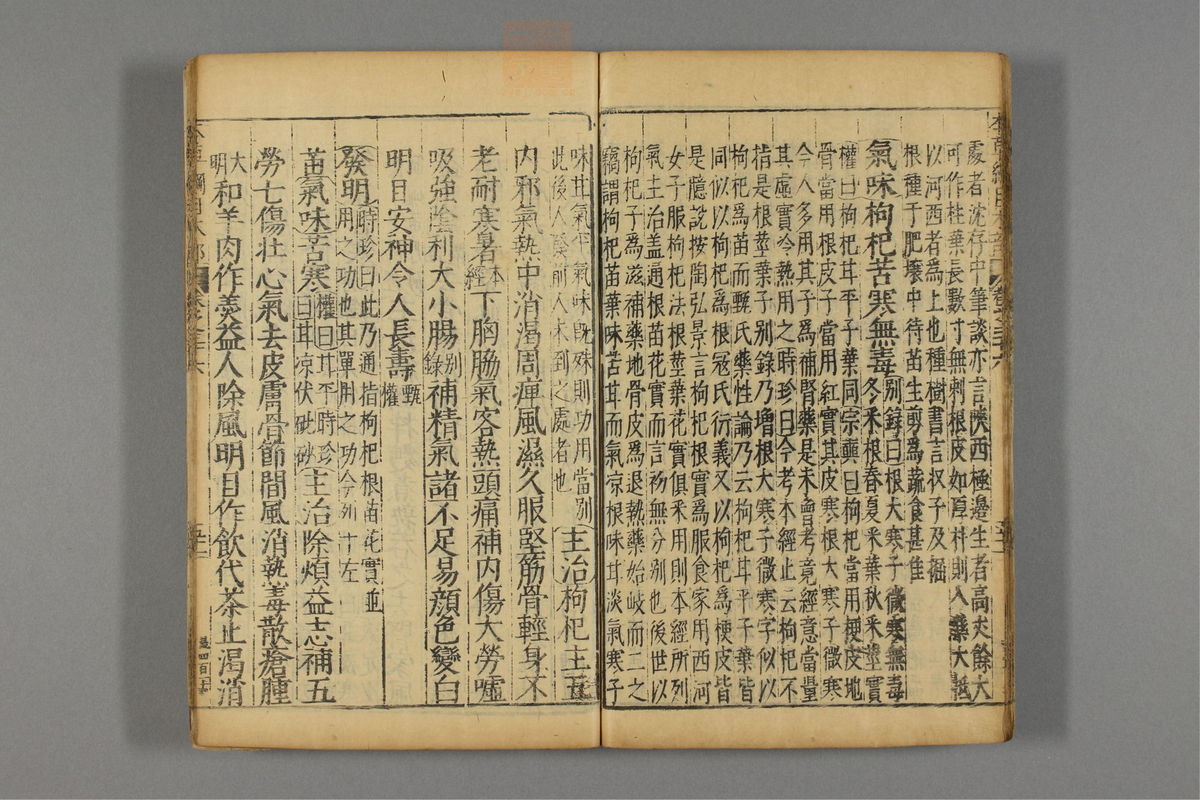 處者沈存中筆談亦言陝西極邊生者高丈餘大
可作柱葉長數寸無刺根皮如厚朴則入藥大抵
以河西者爲上也種樹書言收子及掘
根種于肥壤中待苗生剪爲蔬食甚佳
氣味枸杞苦寒無毒別錄曰根大寒子微寒無毒
冬釆根春夏釆葉秋釆莖實
權曰枸杞甘平子葉同宗奭曰枸杞當用梗皮地
骨當用根皮子當用紅實其皮寒根大寒子微寒
今人多用其子爲補腎藥是未曾考竟經意當量
其虛實冷熱用之時珍曰今考本經止云枸杞不
指是根莖葉子別錄乃增根大寒子微寒字似以
枸杞爲苗而甄氏藥性論乃云枸杞甘平子葉皆
同似以枸杞爲根冦氏衍義又以枸杞爲梗皮皆
是臆說按陶弘景言枸杞根實爲服食家用西河
女子服枸杞法根莖葉花實俱釆用則本經所列
氣主治葢通根苗花實而言初無分別也後世以
枸杞子爲滋補藥地骨皮爲退熱藥始岐而二之
竊謂枸杞苗葉味苦甘而氣凉根味甘淡氣寒子
味甘氣平氣味旣殊則功用當別
此後人發前人未到之處者也
主治枸杞主五
內邪氣熱中消渴周痺風濕久服堅筋骨輕身不
老耐寒暑本經下胸脇氣客熱頭痛補內傷大勞噓
吸強陰利大小腸別錄補精氣諸不足易顏色變白
明目安神令人長壽甄權
發明時珍曰此乃通指枸杞根苗花實並
用之功也其單用之功今列于左
苗氣味苦寒權曰甘平時珍
曰甘凉伏砒砂主治除煩益志補五
勞七傷壯心氣去皮膚骨節間風消熱毒散瘡腫
大明和羊肉作羮益人除風明目作飲代茶止渴消